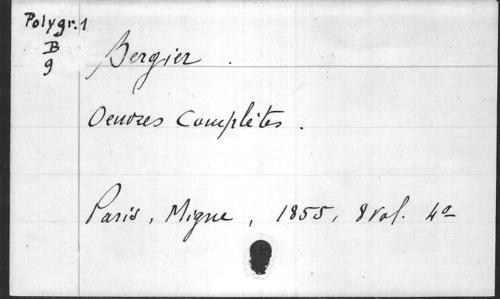 Polygr. 1
B
9
Bergier.
Oeuvres Complètes.
Paris, Migne, 1855, 8 vol. 4º